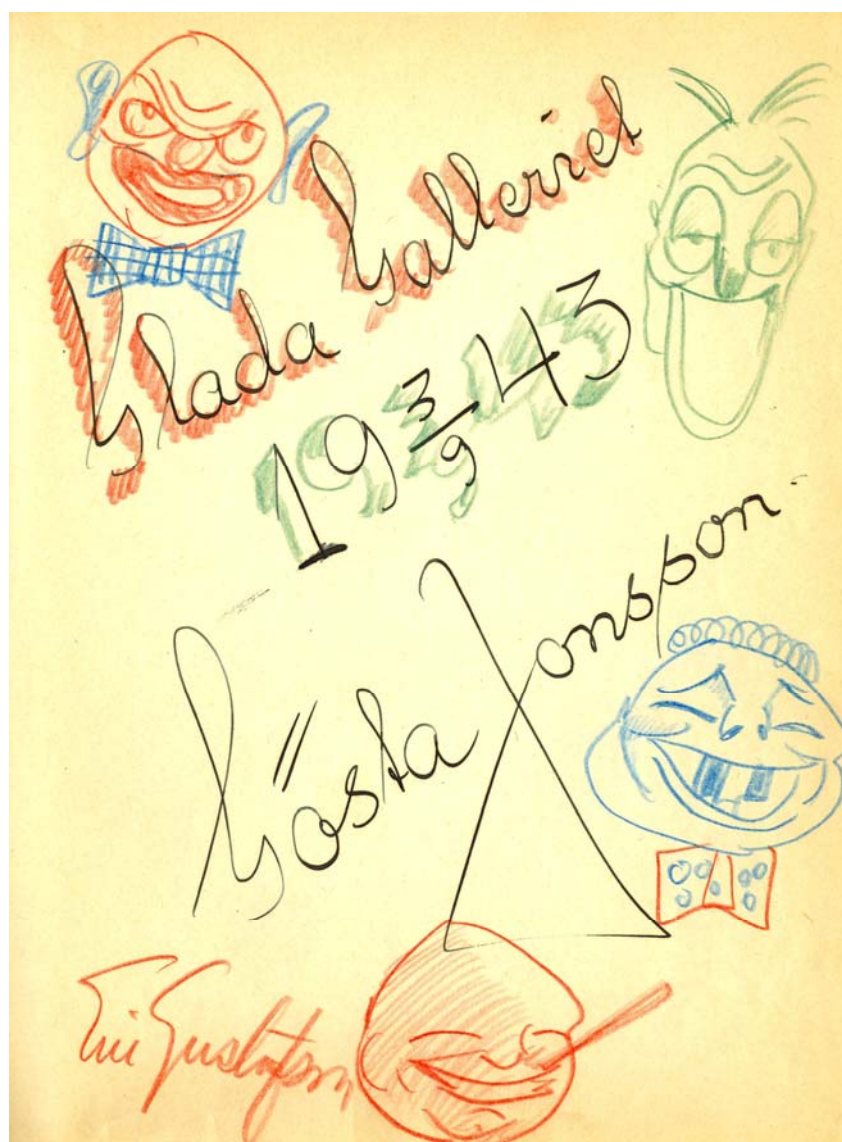 Glada Galleriet
19 3/9 43
Gösta Jonsson
Eric Gustafson